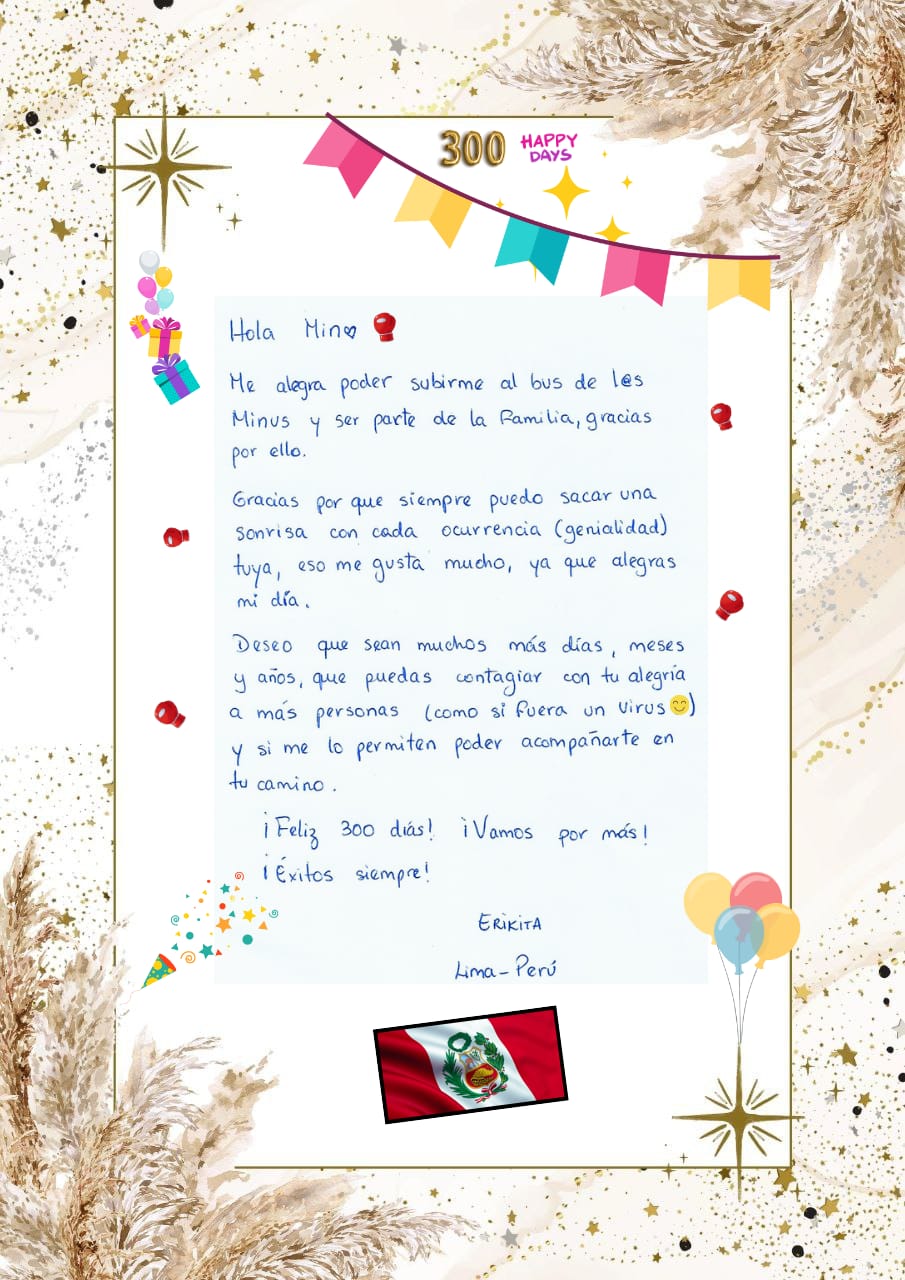 300 HAPPY
DAYS
Hola Min♥ 🥊
Me alegra poder subirme al bus de l@s
Minus y ser parte de la familia, gracias
por ello.
Gracias por que siempre puedo sacar una
sonrisa con cada ocurrencia (genialidad)
tuya, eso me gusta mucho, ya que alegras
mi día.
Deseo que sean muchos más días, meses
y años, que puedas contagiar con tu alegría
a más personas (como si fuera un virus😊)
y si me lo permiten poder acompañarte en
tu camino.
¡Feliz 300 días! ¡Vamos por más!
¡Éxitos siempre!
ERIKITA
Lima-Perú